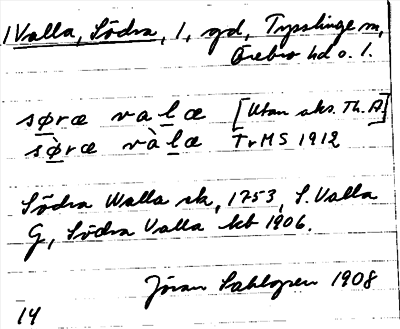 1 Valla, Södra, 1, gd, Tysslinge sn,
Örebro hd o. l.
søræ valæ [Utan aks. Th. A.]
sø̀ræ vàlæ TvMS 1912
Södra Walla sk, 1753, S. Valla
G, Södra Valla kb 1906.
Jöran Sahlgren 1908
14